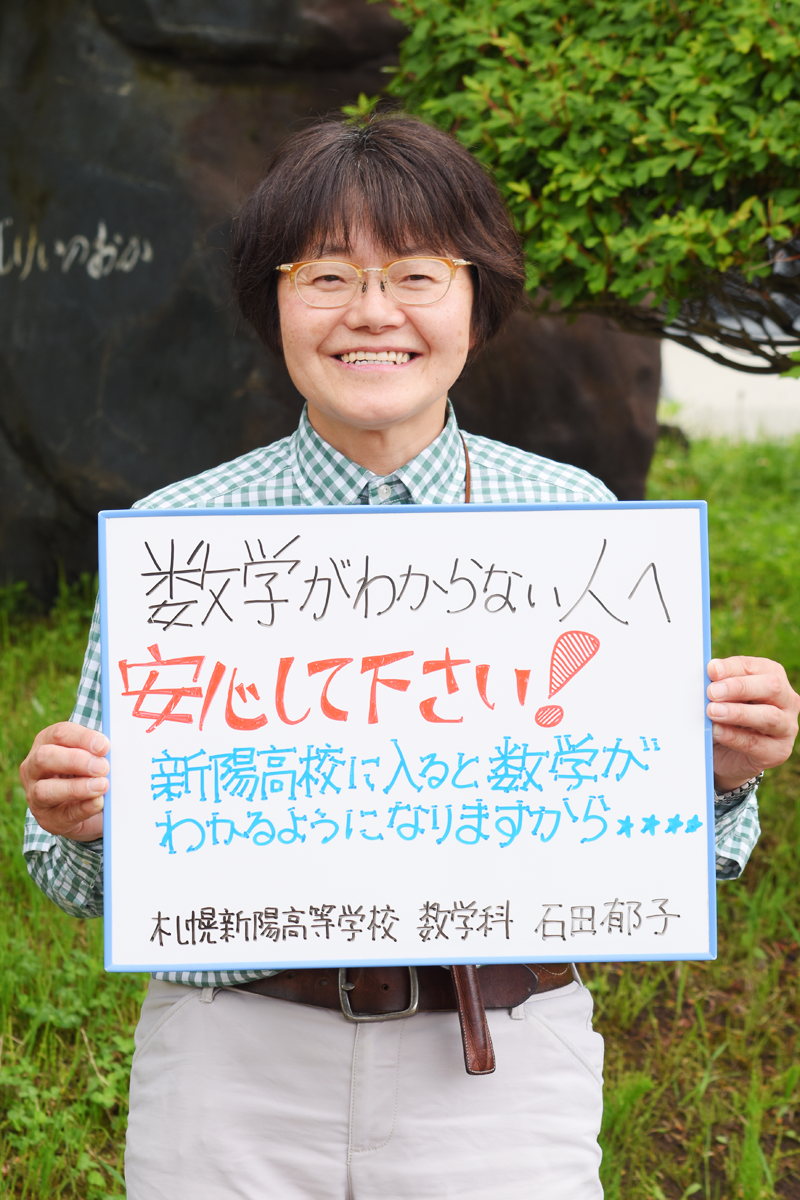 じりいのおか
数学がわからない人へ
安心して下さい!
新陽高校に入ると数学が
わかるようになりますから★★★★
札幌新陽高等学校 数学科 石田郁子